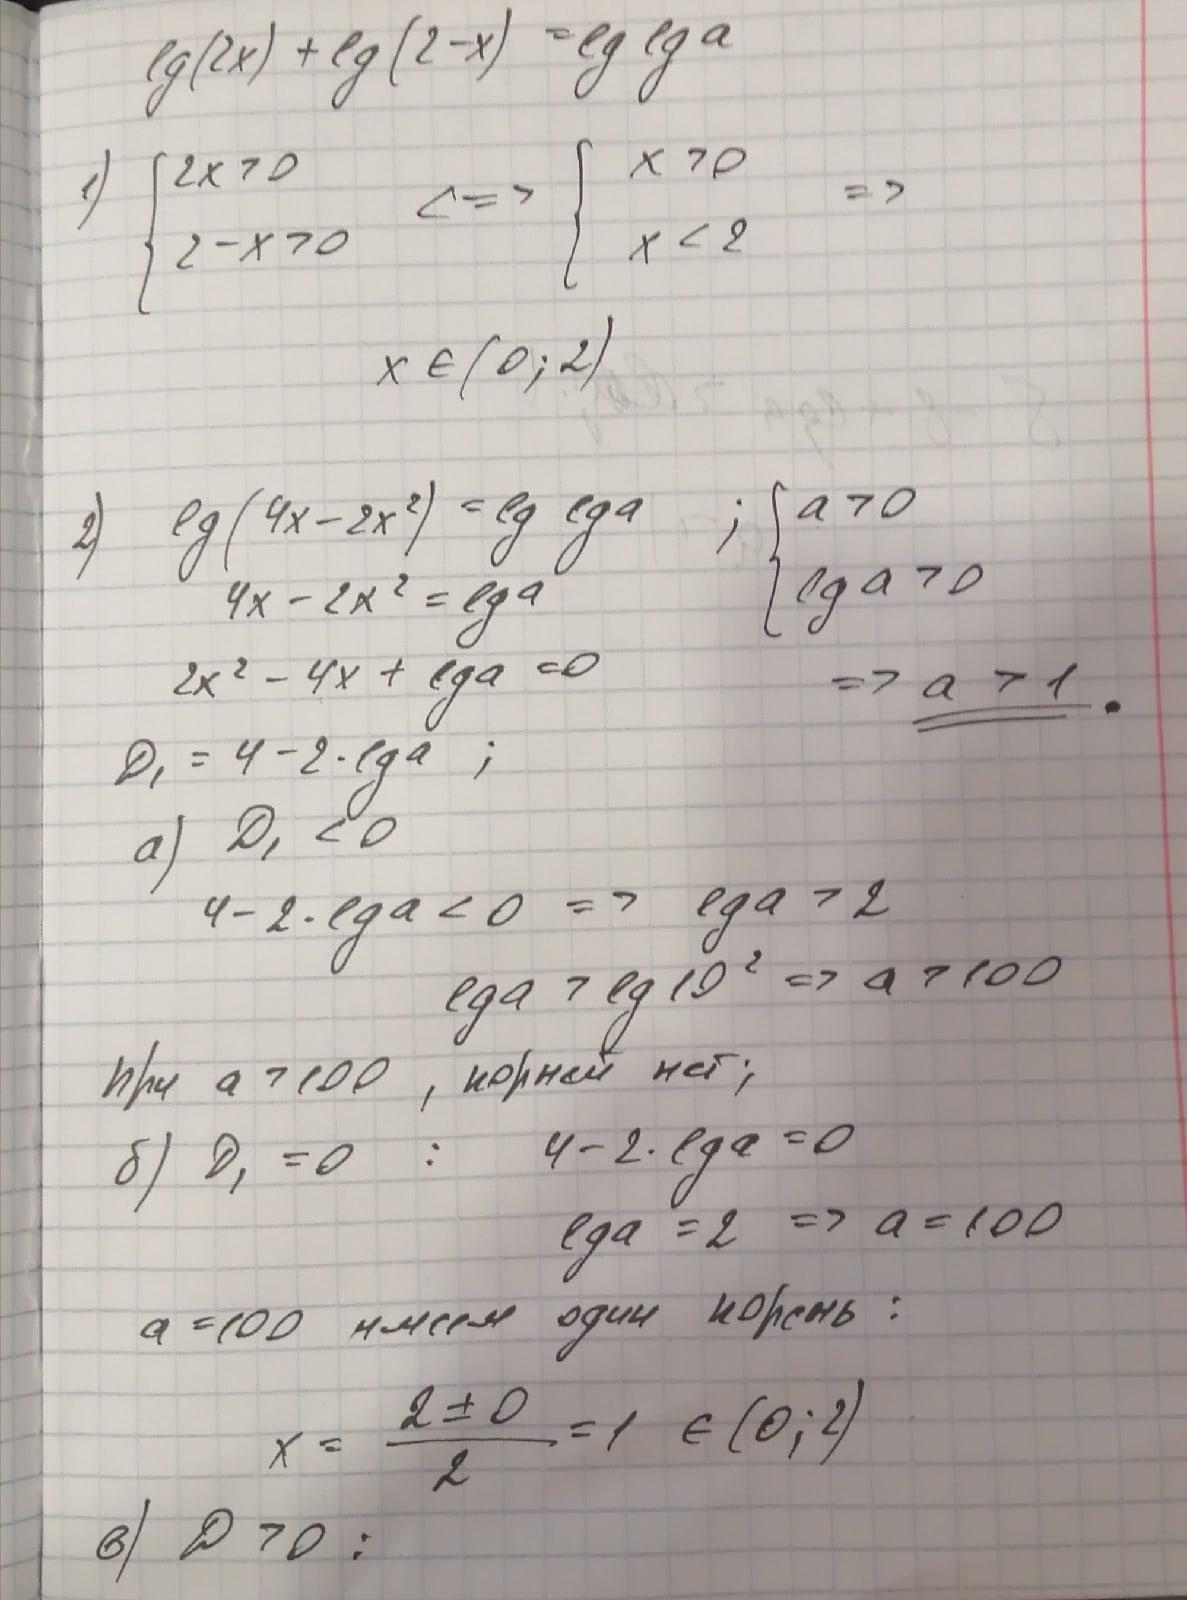 lg(2x) + lg(2-x) = lg lg a
1) { 2x > 0 <=> { x > 0 =>
2-x > 0 x < 2
x ∈ (0; 2)
2) lg(4x - 2x²) = lg lg a ; { a > 0
4x - 2x² = lg a lg a > 0
2x² - 4x + lg a = 0 => a > 1.
D₁ = 4 - 2·lg a ;
а) D₁ < 0
4 - 2·lg a < 0 => lg a > 2
lg a > lg 10² => a > 100
При a > 100, корней нет;
б) D₁ = 0 : 4 - 2·lg a = 0
lg a = 2 => a = 100
a = 100 имеем один корень:
x = (2 ± 0)/2 = 1 ∈ (0; 2)
в) D > 0 :